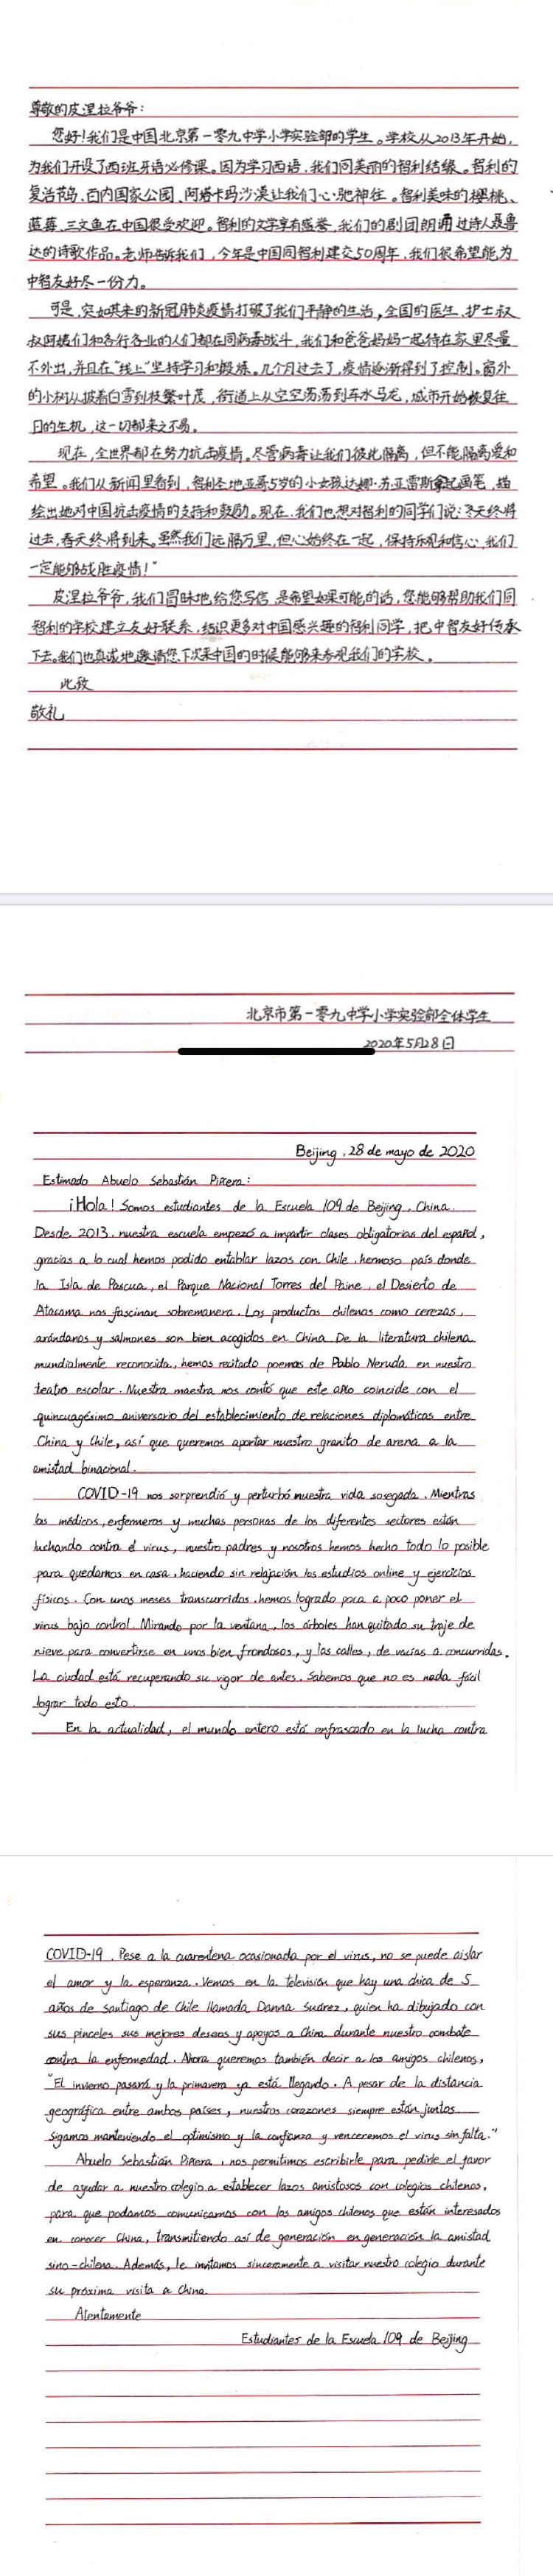 尊敬的皮涅拉爷爷：
您好！我们是中国北京第一零九中学小学实验部的学生。学校从2013年开始，
为我们开设了西班牙语必修课。因为学习西语，我们同美丽的智利结缘。智利的
复活节岛、百内国家公园、阿塔卡马沙漠让我们心驰神往。智利美味的樱桃、
蓝莓、三文鱼在中国很受欢迎。智利的文学享有盛誉，我们的剧团朗诵过诗人聂鲁
达的诗歌作品。老师告诉我们，今年是中国同智利建交50周年，我们很希望能为
中智友好尽一份力。
可是，突如其来的新冠肺炎疫情打破了我们平静的生活，全国的医生、护士叔
叔阿姨们和各行各业的人们都在同病毒战斗，我们和爸爸妈妈一起待在家里尽量
不外出，并且在“线上”坚持学习和锻炼。几个月过去了，疫情逐渐得到了控制。窗外
的小树从披着白雪到枝繁叶茂，街道上从空空荡荡到车水马龙，城市开始恢复往
日的生机，这一切都来之不易。
现在，全世界都在努力抗击疫情。尽管病毒让我们彼此隔离，但不能隔离爱和
希望。我们从新闻里看到，智利圣地亚哥5岁的小女孩达娜·苏亚雷斯拿起画笔，描
绘出她对中国抗击疫情的支持和鼓励。现在，我们也想对智利的同学们说：“冬天终将
过去，春天终将到来。虽然我们远隔万里，但心始终在一起，保持乐观和信心，我们
一定能够战胜疫情！”
皮涅拉爷爷，我们冒昧地给您写信，是希望如果可能的话，您能够帮助我们同
智利的学校建立友好联系，结识更多对中国感兴趣的智利同学，把中智友好传承
下去。我们也真诚地邀请您，下次来中国的时候能够来参观我们的学校。
此致
敬礼
北京市第一零九中学小学实验部全体学生
2020年5月28日
Beijing, 28 de mayo de 2020
Estimado Abuelo Sebastián Piñera:
¡Hola! Somos estudiantes de la Escuela 109 de Beijing, China.
Desde 2013, nuestra escuela empezó a impartir clases obligatorias del español,
gracias a lo cual hemos podido entablar lazos con Chile, hermoso país donde
la Isla de Pascua, el Parque Nacional Torres del Paine, el Desierto de
Atacama nos fascinan sobremanera. Los productos chilenos como cerezas,
arándanos y salmones son bien acogidos en China. De la literatura chilena
mundialmente reconocida, hemos recitado poemas de Pablo Neruda en nuestro
teatro escolar. Nuestra maestra nos contó que este año coincide con el
quincuagésimo aniversario del establecimiento de relaciones diplomáticas entre
China y Chile, así que queremos aportar nuestro granito de arena a la
amistad binacional.
COVID-19 nos sorprendió y perturbó nuestra vida sosegada. Mientras
los médicos, enfermeros y muchas personas de los diferentes sectores están
luchando contra el virus, nuestro padres y nosotros hemos hecho todo lo posible
para quedarnos en casa, haciendo sin relajación los estudios online y ejercicios
físicos. Con unos meses transcurridos, hemos logrado poco a poco poner el
virus bajo control. Mirando por la ventana, los árboles han quitado su traje de
nieve para convertirse en unos bien frondosos, y las calles, de vacías a concurridas.
La ciudad está recuperando su vigor de antes. Sabemos que no es nada fácil
lograr todo esto.
En la actualidad, el mundo entero está enfrascado en la lucha contra
COVID-19. Pese a la cuarentena ocasionada por el virus, no se puede aislar
el amor y la esperanza. Vemos en la televisión que hay una chica de 5
años de Santiago de Chile llamada Danna Suárez, quien ha dibujado con
sus pinceles sus mejores deseos y apoyos a China durante nuestro combate
contra la enfermedad. Ahora queremos también decir a los amigos chilenos,
“El invierno pasará y la primavera ya está llegando. A pesar de la distancia
geográfica entre ambos países, nuestros corazones siempre están juntos.
Sigamos manteniendo el optimismo y la confianza y venceremos el virus sin falta.”
Abuelo Sebastián Piñera, nos permitimos escribirle para pedirle el favor
de ayudar a nuestro colegio a establecer lazos amistosos con colegios chilenos,
para que podamos comunicarnos con los amigos chilenos que están interesados
en conocer China, transmitiendo así de generación en generación la amistad
sino-chilena. Además, le invitamos sinceramente a visitar nuestro colegio durante
su próxima visita a China.
Atentamente
Estudiantes de la Escuela 109 de Beijing